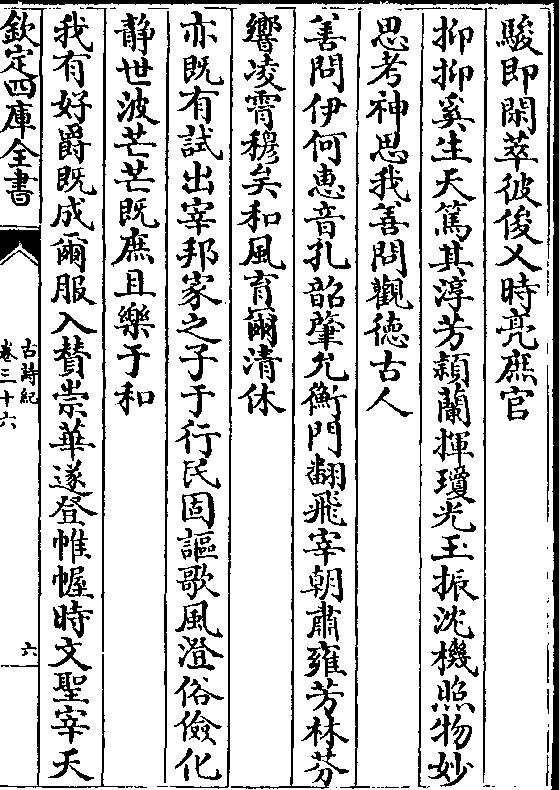 駿即閑萃彼俊乂時亮庶官
抑抑奚生天篤其淳芳頴蘭揮瓊光玉振沈機照物妙
思考神思我善問觀徳古人
善問伊何惠音孔韶肇允衡門翻飛宰朝肅雍芳林芬
響凌霄穆矣和風育爾清休
亦既有試出宰邦家之子于行民固謳歌風澄俗儉化
静世波芒芒既庶且樂于和
我有好爵既成爾服入賛崇華遂登帷幄時文聖宰天
欽定四庫全書
古詩紀
卷三十六
六